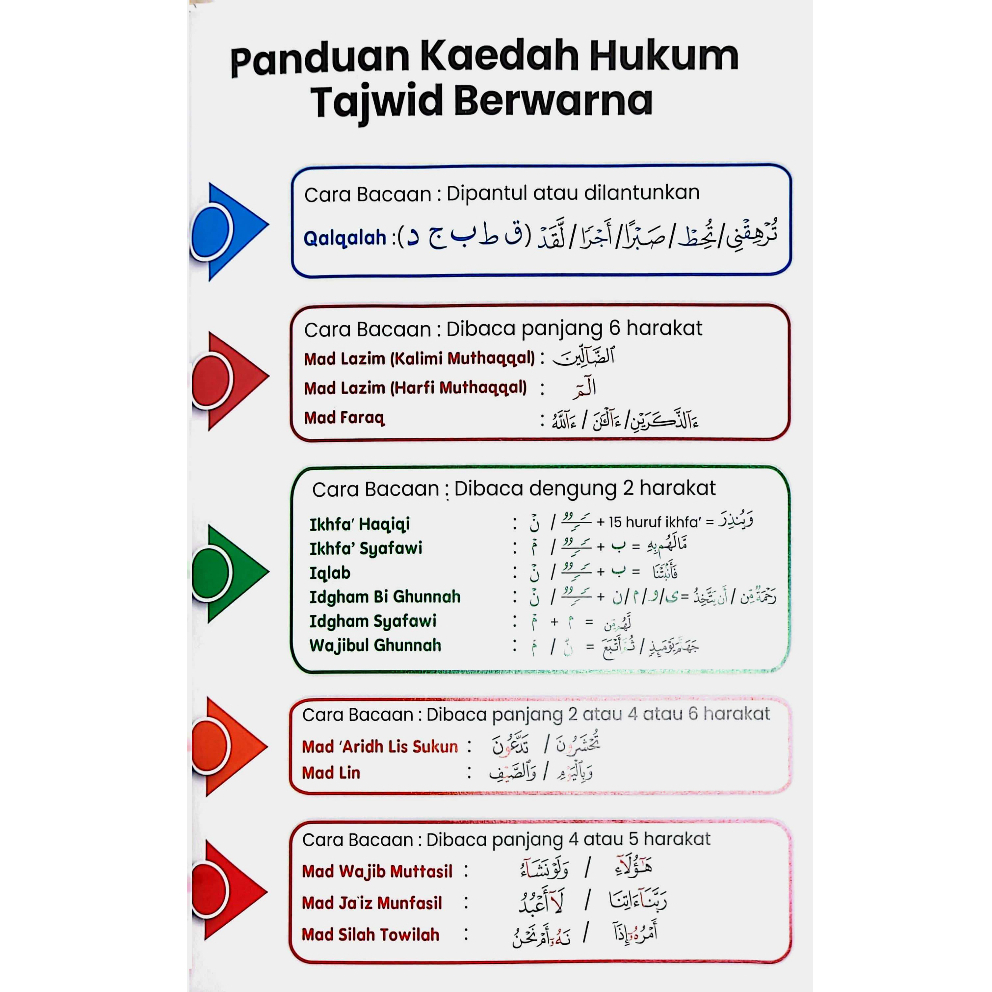 Panduan Kaedah Hukum
Tajwid Berwarna
Cara Bacaan : Dipantul atau dilantunkan
Qalqalah :(ق ط ب ج د) لَّقَدْ / أَجْرًا / صَبْرًا / تُحِطْ / تُرْهِقْنِي
Cara Bacaan : Dibaca panjang 6 harakat
Mad Lazim (Kalimi Muthaqqal) : ٱلضَّآلِّينَ
Mad Lazim (Harfi Muthaqqal) : الٓمٓ
Mad Faraq : ءَآللَّهُ / ءَآلْـَٰٔنَ / ءَآلذَّكَرَيْنِ
Cara Bacaan : Dibaca dengung 2 harakat
Ikhfa’ Haqiqi : نْ / ـًـٍـٌ + 15 huruf ikhfa’ = وَيُنذِرَ
Ikhfa’ Syafawi : مْ / ـًـٍـٌ + ب = مَّالَهُم بِهِ
Iqlab : نْ / ـًـٍـٌ + ب = فَأَنۢبَتْنَا
Idgham Bi Ghunnah : نْ / ـًـٍـٌ + ن/م/و/ي = أَن يَتَّخِذَ / رَحْمَةً مِّن
Idgham Syafawi : مْ + م = لَهُم مِّن
Wajibul Ghunnah : مّ / نّ = ثُمَّ أَتْبَعَ / جَهَنَّمَ يَوْمَئِذٍ
Cara Bacaan : Dibaca panjang 2 atau 4 atau 6 harakat
Mad ‘Aridh Lis Sukun : تَدَّعُونَ / تُحْشَرُونَ
Mad Lin : وَٱلصَّيْفِ / وَبِٱلْيَوْمِ
Cara Bacaan : Dibaca panjang 4 atau 5 harakat
Mad Wajib Muttasil : وَلَوْ نَشَآءُ / هَٰٓؤُلَآءِ
Mad Ja'iz Munfasil : لَآ أَعْبُدُ / رَبَّنَآ ءَاتِنَا
Mad Silah Towilah : أَمْ نَحْنُ / أَمْرُهُۥٓ إِذَآ